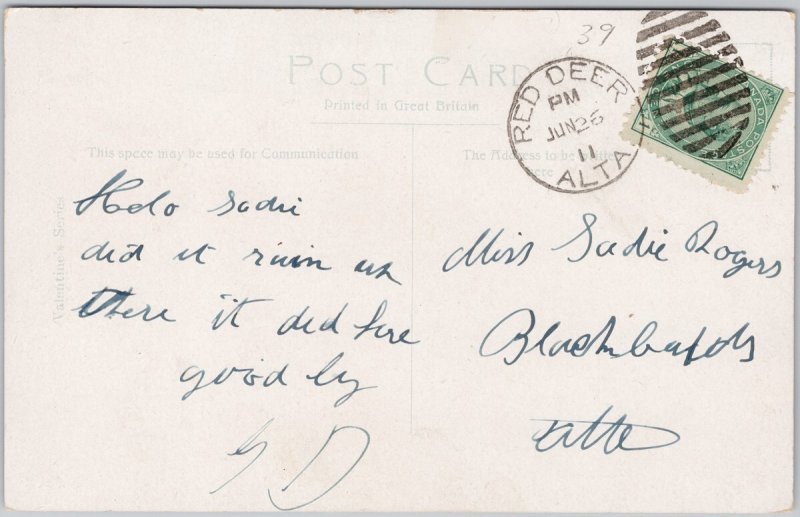 39
POST CARD
Printed in Great Britain
RED DEER
PM
JUN 26
11
ALTA
CANADA POST
This space may be used for Communication
The Address to be written here
Valentine's Series
Helo Sadie
did it ruin up
there it did here
good by
G D
Miss Sadie Rogers
Blackbafols
Alta